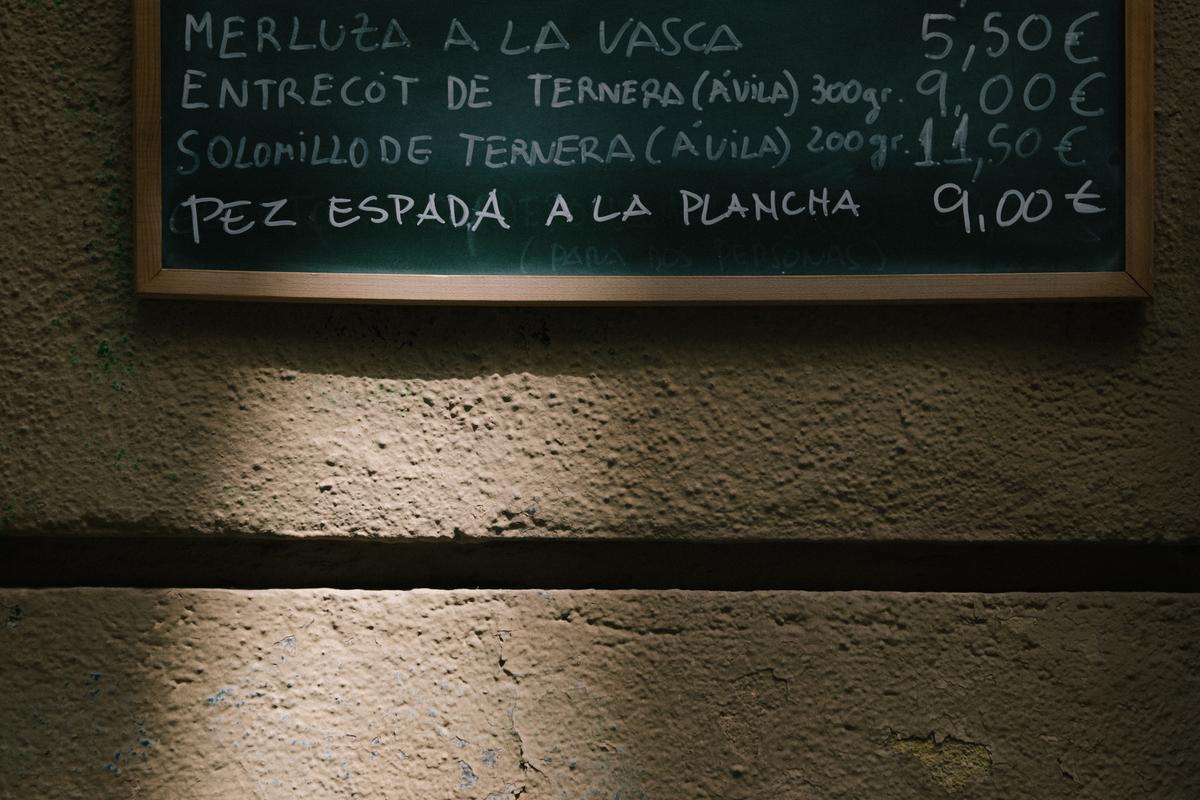 MERLUZA A LA VASCA 5,50€
ENTRECOT DE TERNERA (ÁVILA) 300gr. 9,00€
SOLOMILLO DE TERNERA (ÁVILA) 200gr. 11,50€
PEZ ESPADA A LA PLANCHA 9,00€
(PARA DOS PERSONAS)